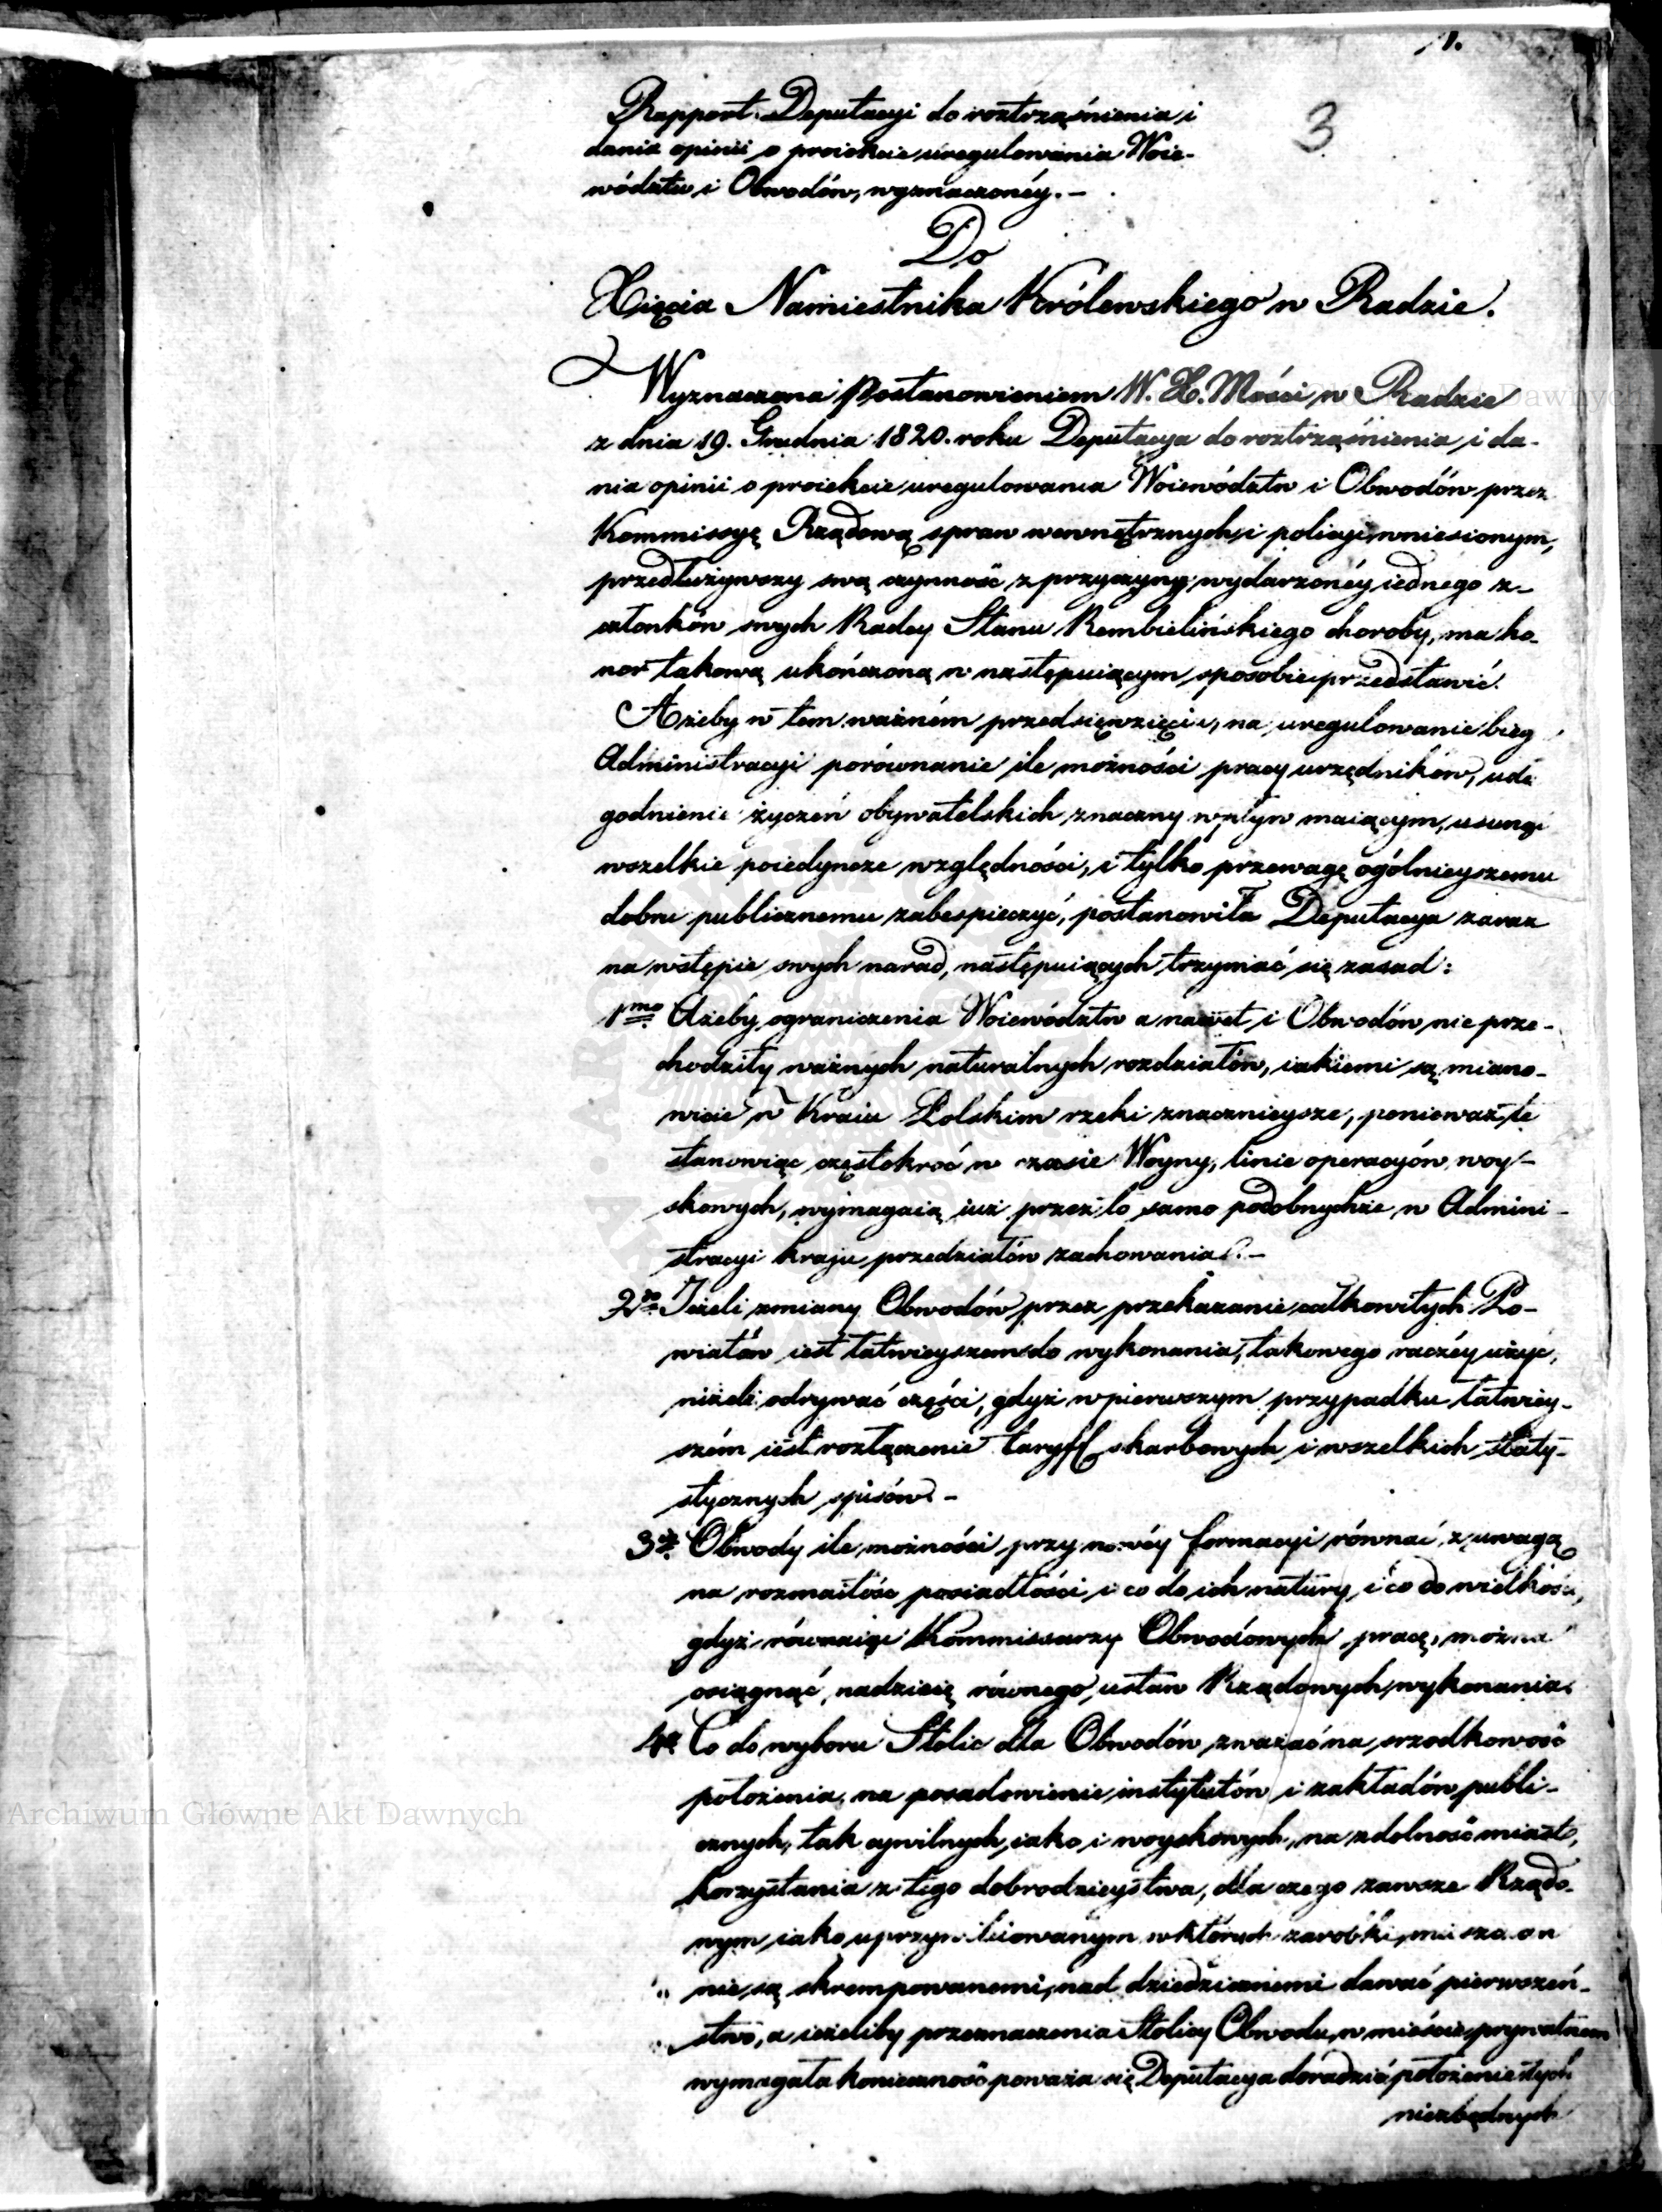 1.
3
Rapport Deputacyi do roztrząśnienia i
dania opinii o proiekcie uregulowania Woie-
wództw i Obwodów, wyznaczonéy. —
Do
Xięcia Namiestnika Królewskiego w Radzie.
Wyznaczona Postanowieniem W. X. Mości w Radzie
z dnia 19. Grudnia 1820. roku Deputacya do roztrząśnienia i da-
nia opinii o proiekcie uregulowania Woiewództw i Obwodów przez
Kommissyę Rządową spraw wewnętrznych i policyi wniesionym,
przedłużywszy swą czynność z przyczyny wydarzonéy iednego z-
członków swych Radcy Stanu Rembielińskiego choroby, ma ho-
nor takową ukończoną w następuiącym sposobie przedstawić.
Ażeby w tem ważném przedsięwzięciu, na uregulowanie bieg
Administracyi porównanie ile możności pracy urzędników, udo
godnienie życzeń obywatelskich znaczny wpływ maiącym, usunąć
wszelkie poiedyncze względności, i tylko przewagę ogólnieyszemu
dobru publicznemu zabespieczyć, postanowiła Deputacya zaraz
na wstępie swych narad, następuiących trzymać się zasad:
1mo Ażeby ograniczenia Woiewództw a nawet i Obwodów nie prze-
chodziły ważnych naturalnych rozdziałów, iakiemi są miano-
wicie w Kraiu Polskim rzeki znacznieysze, ponieważ te
stanowiąc częstokroć w czasie Woyny, linie operacyów woy-
skowych, wymagaią iuż przez to samo podobnychże w Admini-
stracyi kraju przedziałów zachowania. —
2do Jeżeli zmiany Obwodów przez przekazanie całkowitych Po-
wiatów iest łatwieyszem do wykonania, takowego raczéy użyć,
niżeli odrywać części, gdyż w pierwszym przypadku łatwiey-
szém iest rozłączenie taryff skarbowych i wszelkich staty-
stycznych spisów. —
3tio Obwody ile możności przy nowéy formacyi równać z uwagą
na rozmaitość posiadłości i co do ich natury, i co do wielkości,
gdyż równaiąc Kommissarzy Obwodowych pracę, można
osiągnąć nadzieię równego ustaw Rządowych wykonania.
4to Co do wyboru Stolic dla Obwodów zważać na srzodkowość
położenia, na posadowienie instytutów i zakładów publi-
cznych, tak cywilnych, iako i woyskowych, na zdolność miast,
korzystania z tego dobrodzieystwa, dla czego zawsze Rządo-
wym iako uprzywileiowanym w których zarobki
nie są skrempowanemi, nad dziedzicznemi dawać pierwszeń-
stwo, a ieżeliby przeznaczenia Stolicy Obwodu, w mieście prywatnem
wymagała konieczność poważa się Deputacya doradzić położenie tych
niezbędnych
Archiwum Główne Akt Dawnych